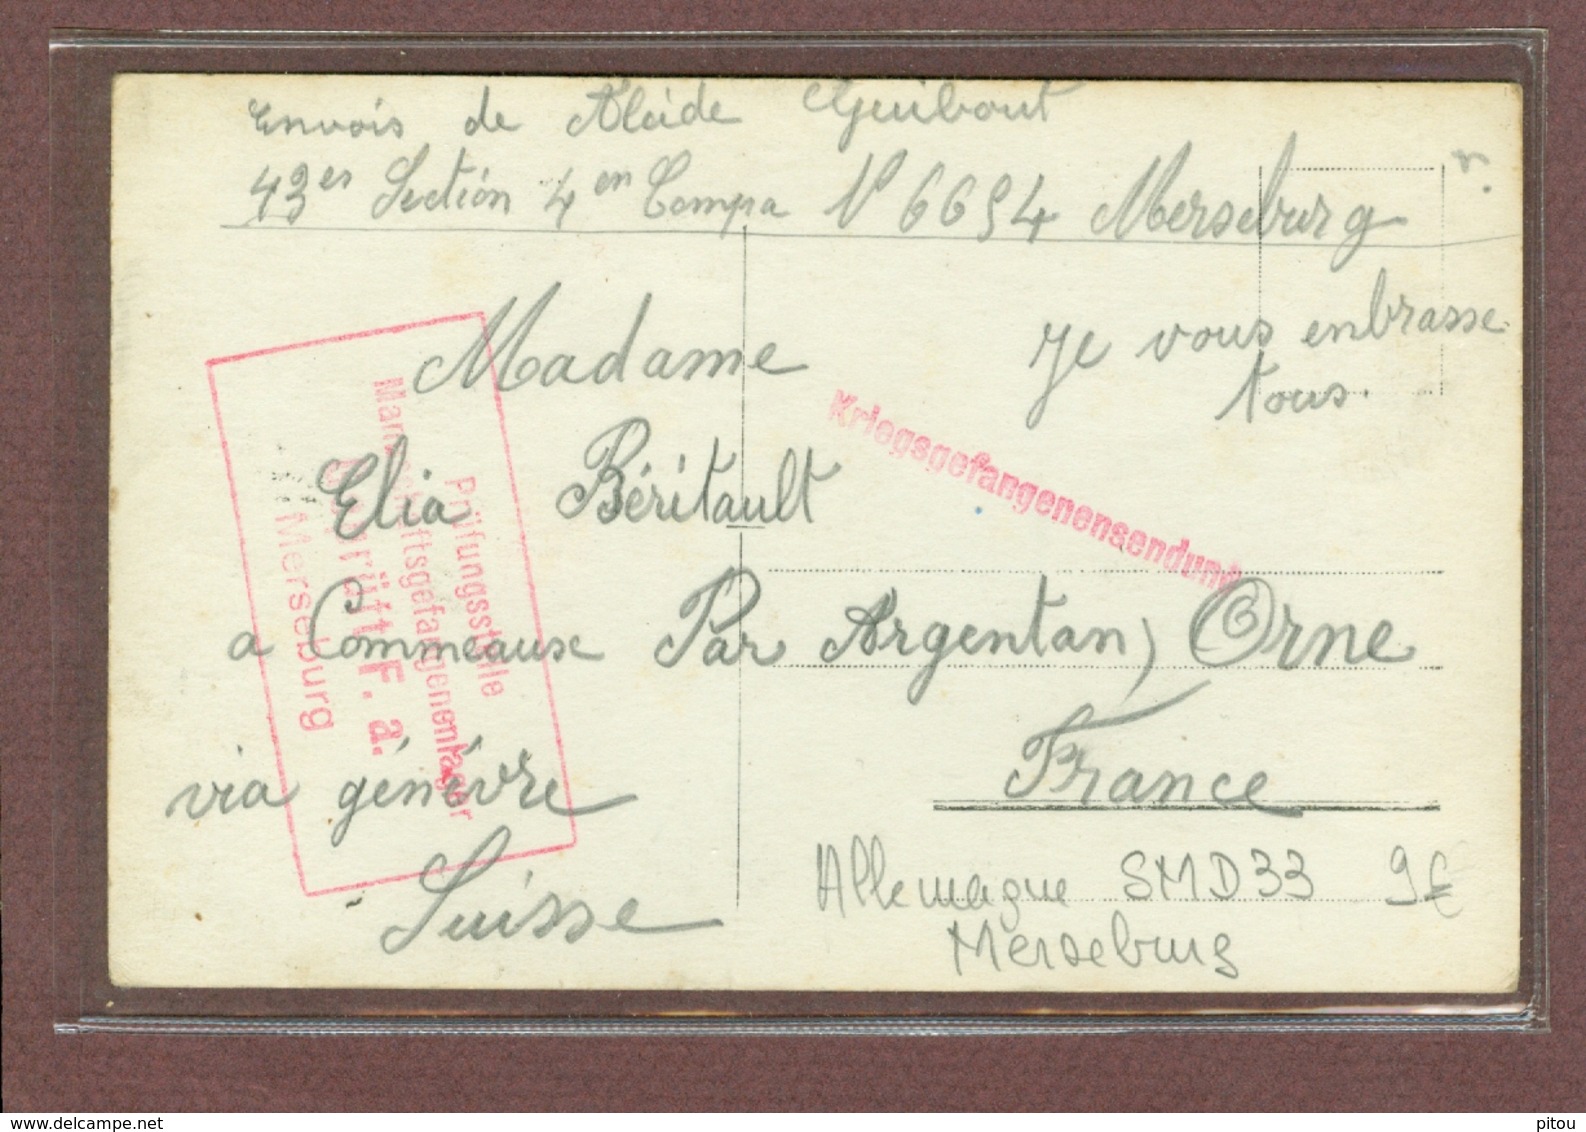 Envois de Alcide Guibout
43es Section 4en Compa N° 6694 Merseburg
Je vous enbrasse
tous.
Madame
Elia Béritault
a Commeaux Par Argentan, Orne
France
via génévre
Suisse
Kriegsgefangenensendung
Prüfungsstelle
Mannschaftsgefangenenlager
Geprüft F. a.
Merseburg
Allemagne SMD33 9€
Merseburg
www.delcampe.net
pitou